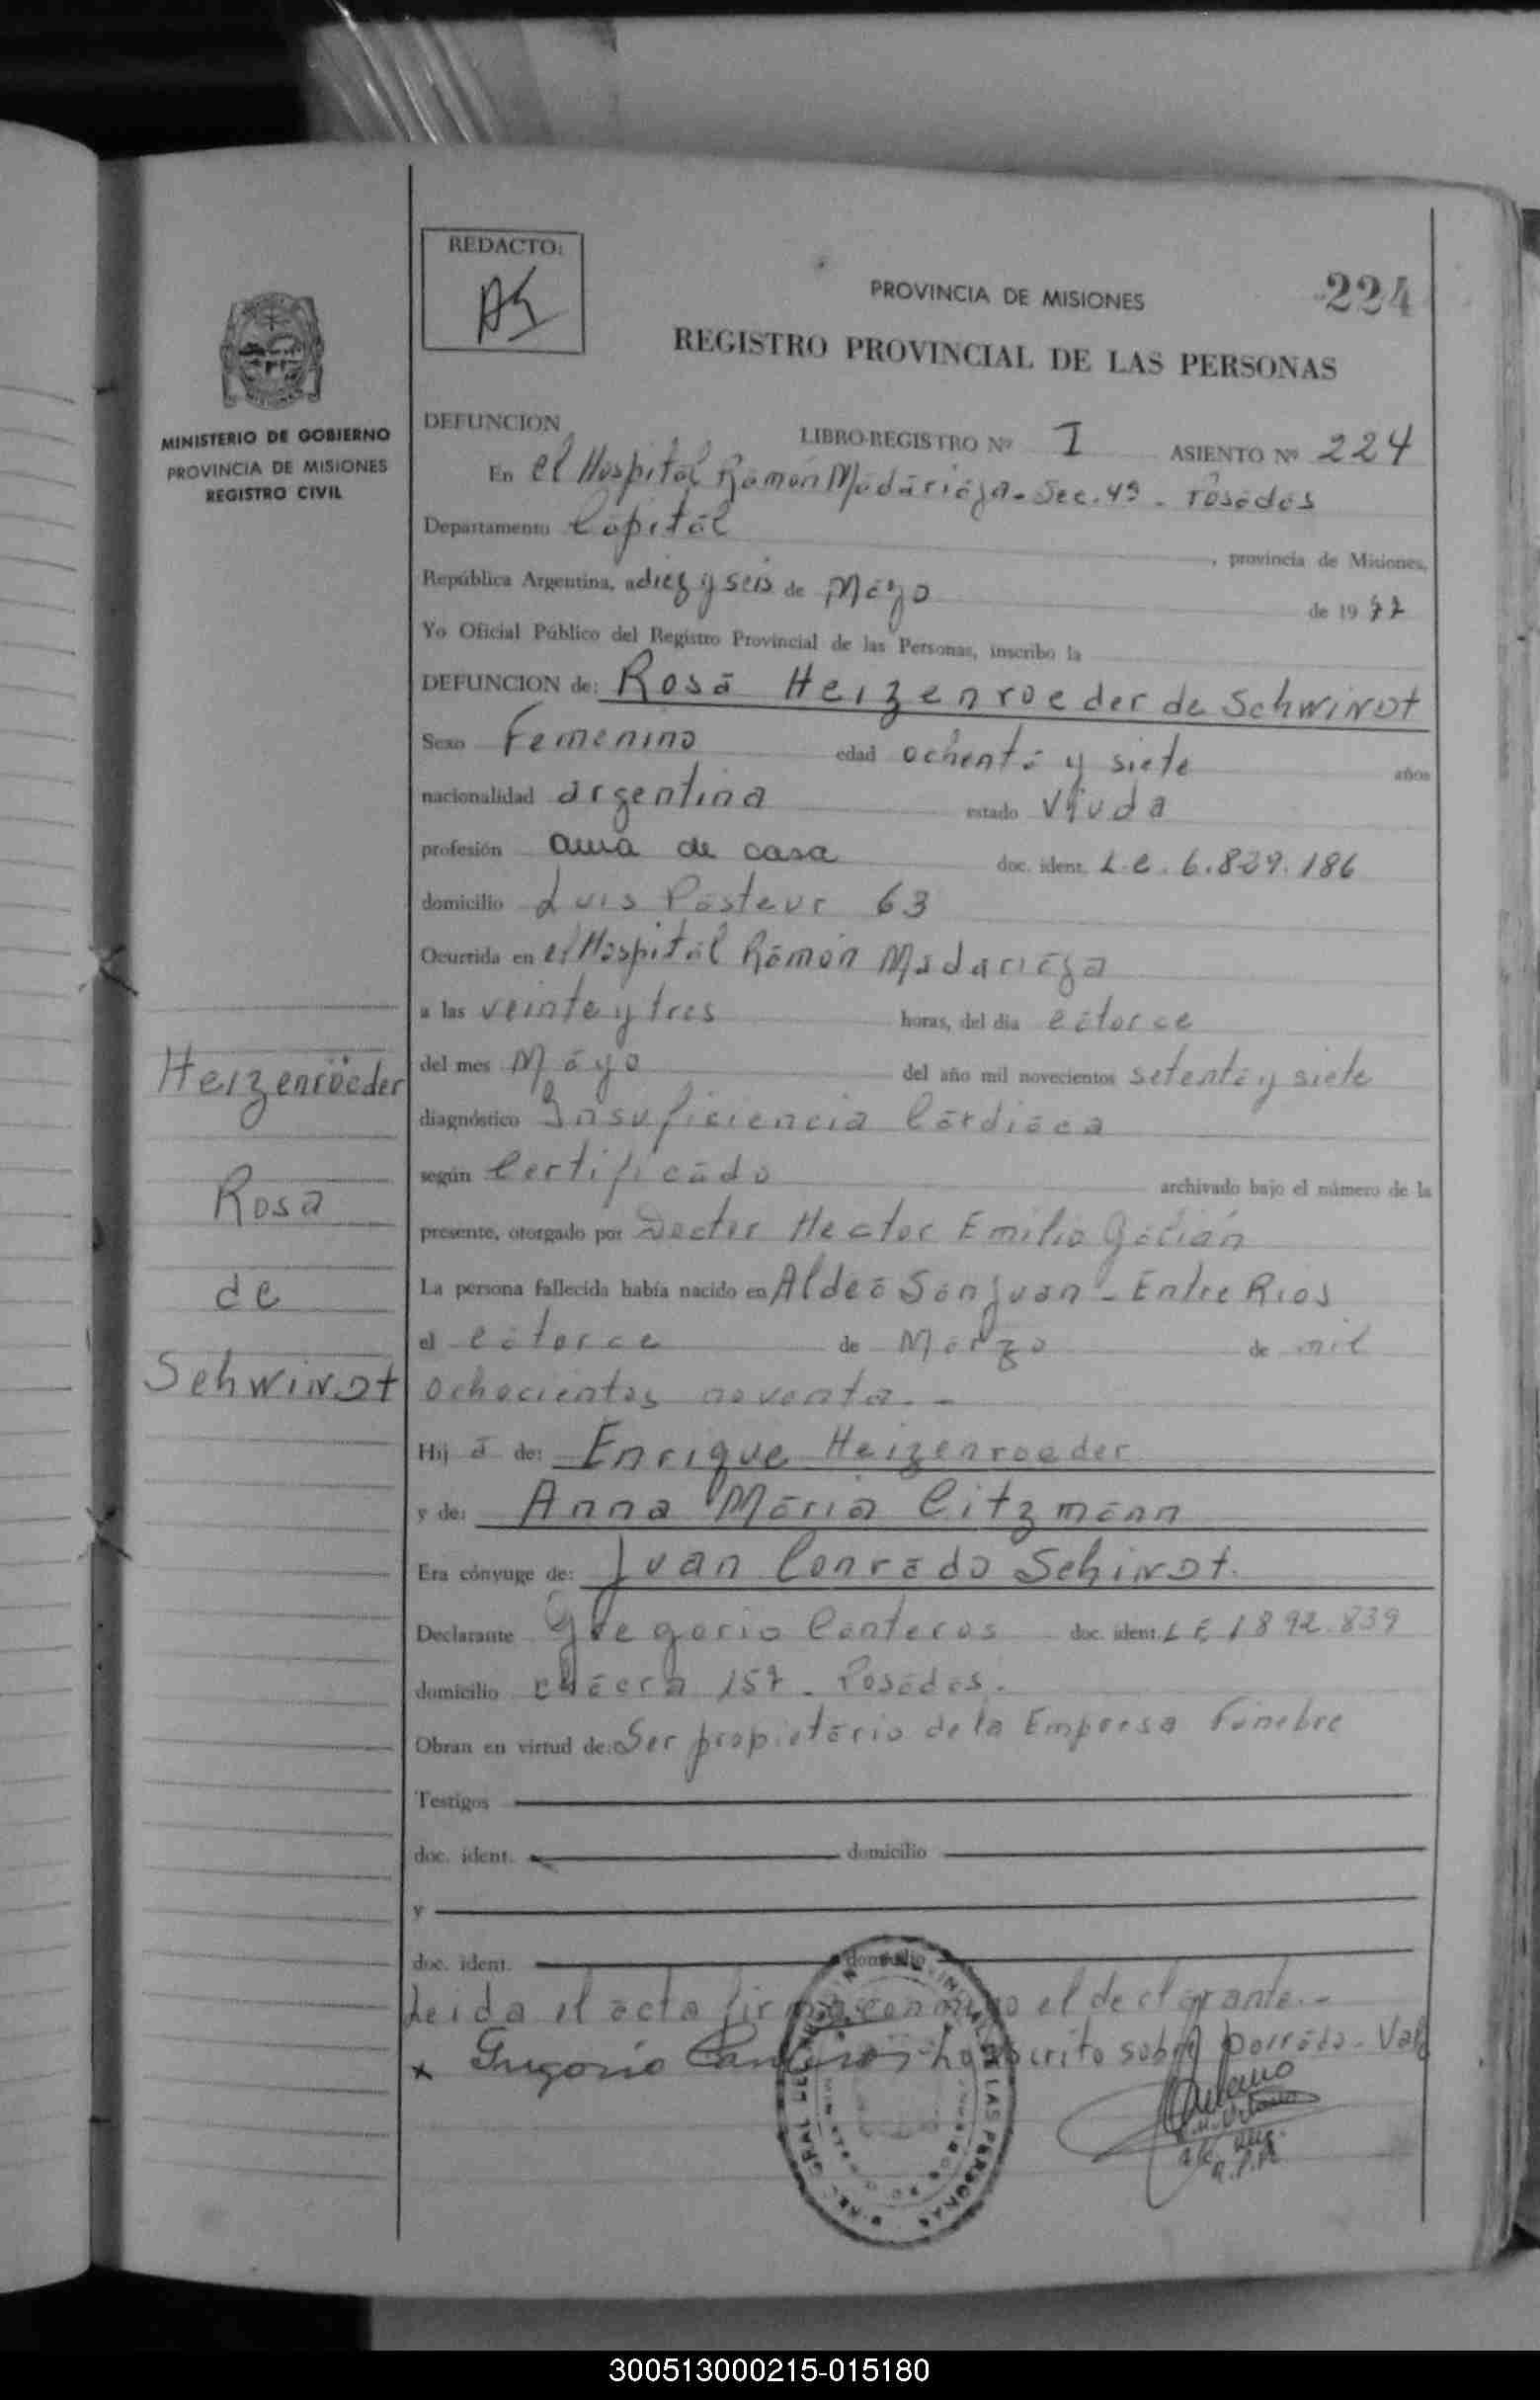 REDACTO:
AS
PROVINCIA DE MISIONES
224
REGISTRO PROVINCIAL DE LAS PERSONAS
MINISTERIO DE GOBIERNO
PROVINCIA DE MISIONES
REGISTRO CIVIL
DEFUNCION
LIBRO-REGISTRO Nº I ASIENTO Nº 224
En el Hospital Ramón Madariaga - Sec. 4ª - Posadas
Departamento Capital, provincia de Misiones,
República Argentina, a diez y seis de Mayo de 1977
Yo Oficial Público del Registro Provincial de las Personas, inscribo la
DEFUNCION de: Rosa Heizenroeder de Schwindt
Sexo Femenino edad ochenta y siete años
nacionalidad argentina estado Viuda
profesión ama de casa doc. ident. L.C. 6.829.186
domicilio Luis Pasteur 63
Ocurrida en el Hospital Ramón Madariaga
a las veinte y tres horas, del día catorce
del mes Mayo del año mil novecientos setenta y siete
diagnóstico Insuficiencia Cardiaca
según Certificado archivado bajo el número de la
presente, otorgado por Doctor Hector Emilio Galian
La persona fallecida había nacido en Aldea San Juan - Entre Rios
el catorce de Marzo de mil
ochocientos noventa.-
Hij a de: Enrique Heizenroeder
y de: Anna Maria Citzmann
Era cónyuge de: Juan Conrado Schindt.
Declarante Gregorio Canteros doc. ident. L E 1892.839
domicilio chacra 157 - Posadas.
Obran en virtud de: Ser propietario de la Empresa Funebre
Testigos
doc. ident. domicilio
y
doc. ident. domicilio
Leida el acta firma conmigo el declarante.-
x Gregorio Canteros - lo escrito sobre borrado - Vale
Heizenröeder
Rosa
de
Schwindt
LAS PERSONAS
300513000215-015180